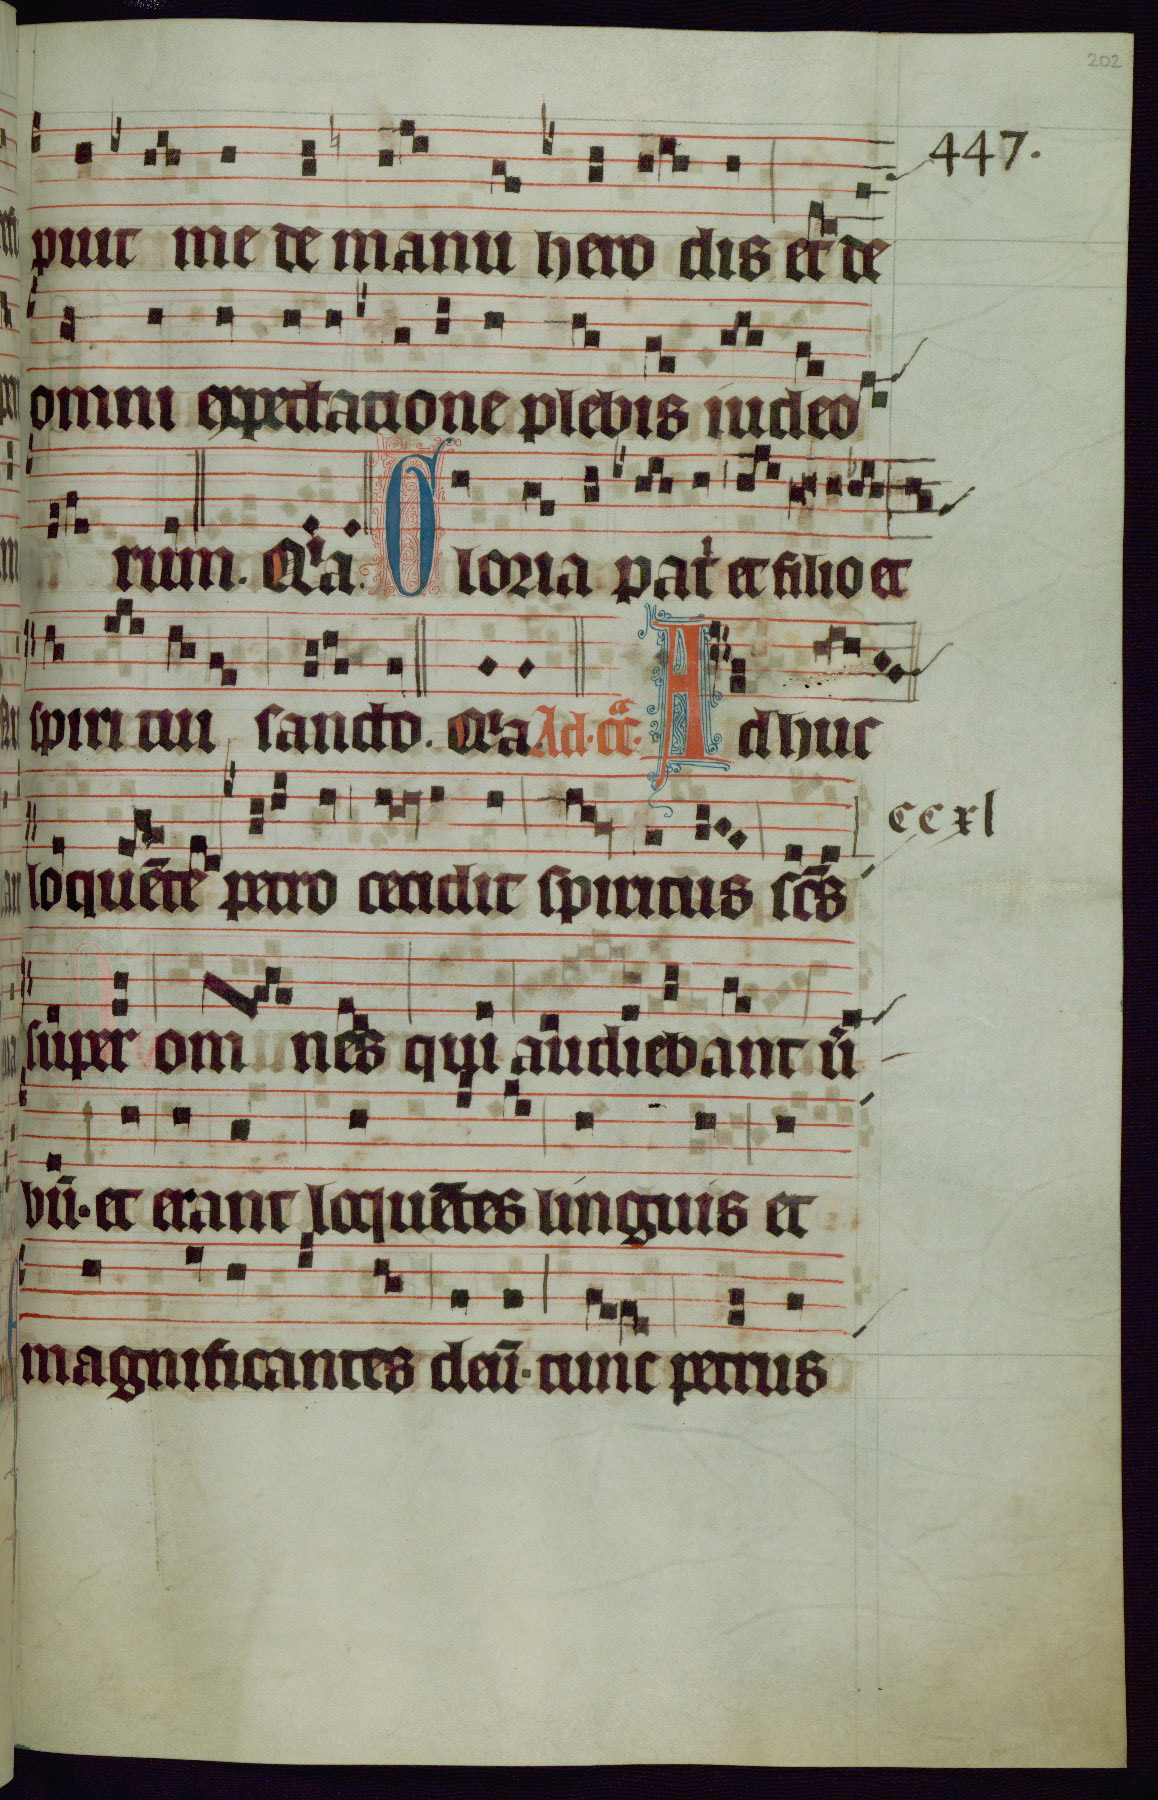 202
447.
puit me de manu hero dis et de
omni expectatione plebis iudeo
rum. Gloria patr̄ et filio et
spiri tui sancto. Ad. cc̄. Adhuc
ccxl
loquēte petro cecidit spiritus sc̄s
super om nes qui audiebant ū
bū. et erant loquētes linguis et
magnificantes deū. tunc petrus